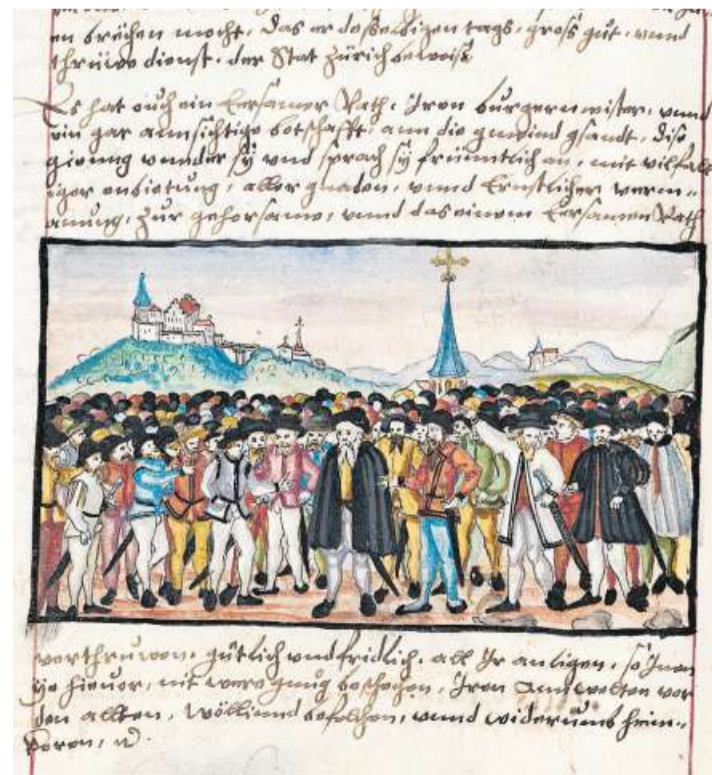 en brächen mocht. Das er desselbigen tags, gross gůt, vnnd
thrüwe dienst, der Stat Zürich beweiss
Es hat ouch ein Eersamer Rath, Jren burgermeister, vnnd
ein gar annsichtige botschafft, ann die gmeind gsandt. Dise
gieng vnnder sÿ vnd sprach sÿ früntlich an, mit vilfalt
iger enbietung, aller gnaden, vnnd Ernstlicher verm-
anung, Zur gehorsame, vnnd das einem Eersamen Rath
verthruwen, gütlich vnd fridlich, all Jr anligen, so Jnen
ye hieuor, nit were gnug beschechen, Jren Annwelten vor
den allten, wöllind befelchen, vnnd widerumb heim-
keren, &